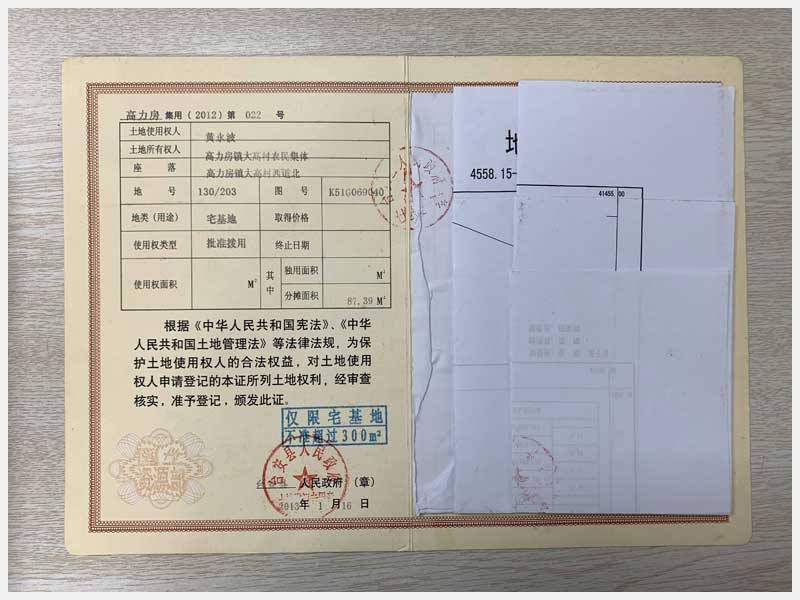 高力房 集用(2012)第 022 号
土地使用权人 黄永波
土地所有权人 高力房镇大高村农民集体
座 落 高力房镇大高村西道北
地 号 130/203 图 号 K51G069040
地类(用途) 宅基地 取得价格
使用权类型 批准拨用 终止日期
使用权面积 M² 其中 独用面积 M²
分摊面积 87.39 M²
根据《中华人民共和国宪法》、《中华
人民共和国土地管理法》等法律法规,为保
护土地使用权人的合法权益,对土地使用
权人申请登记的本证所列土地权利,经审查
核实,准予登记,颁发此证。
仅限宅基地
不准超过300m²
台安县人民政府
人民政府(章)
2013年 1月16日
地
4558.15-
41455.00